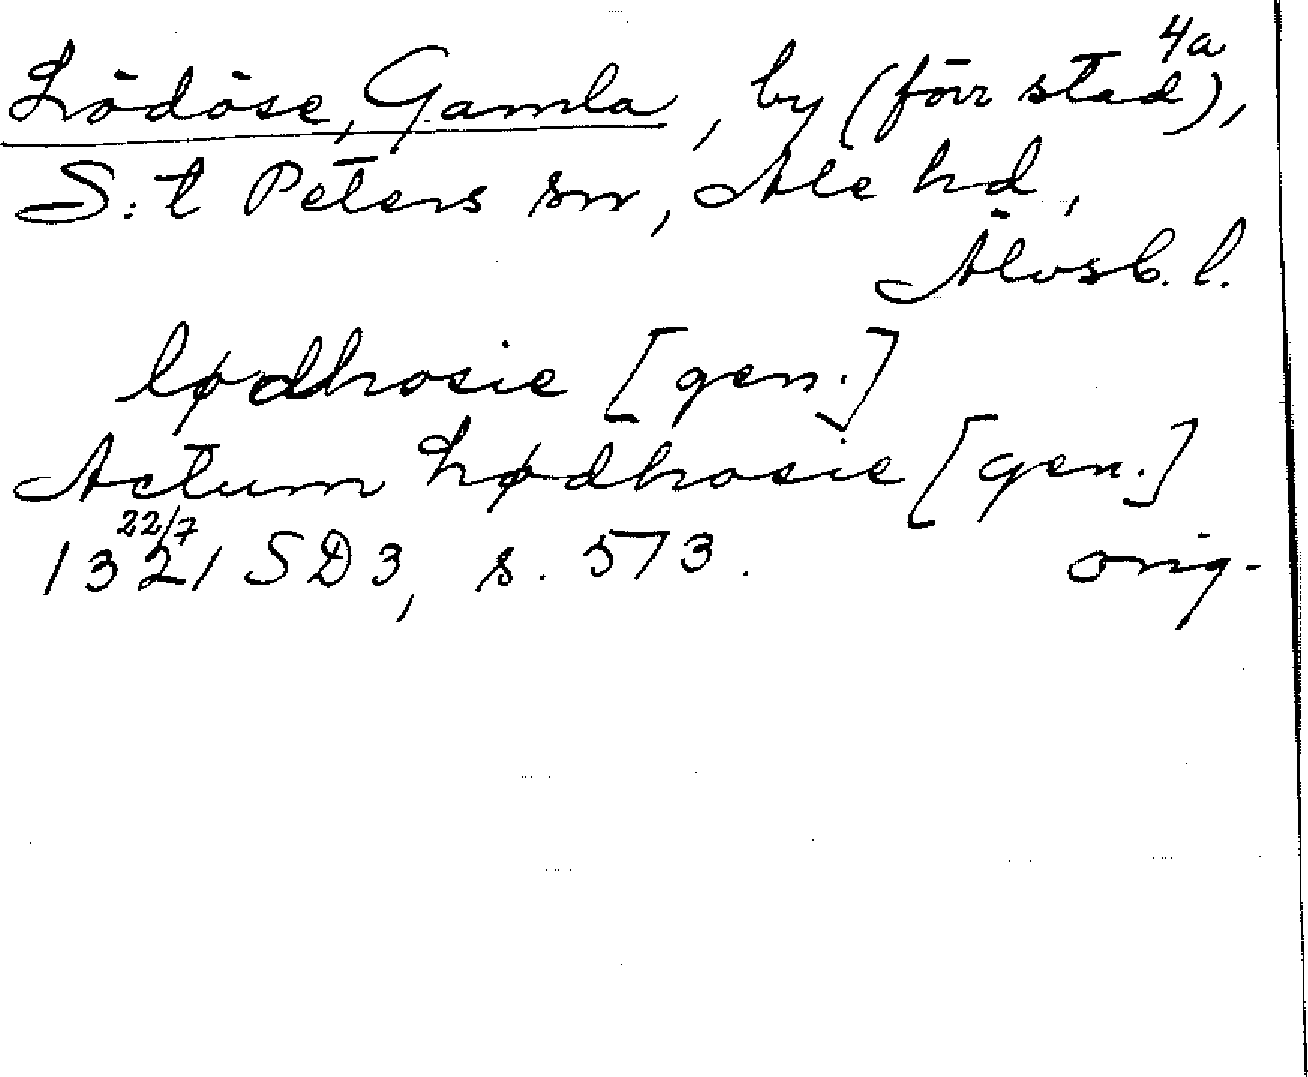 4a
Lödöse, Gamla, by (förr stad),
S:t Peters sn, Ale hd,
Älvsb. l.
lødhosie [gen.]
Actum Lødhosie [gen.]
22/7
1321 SD 3, s. 573. orig.